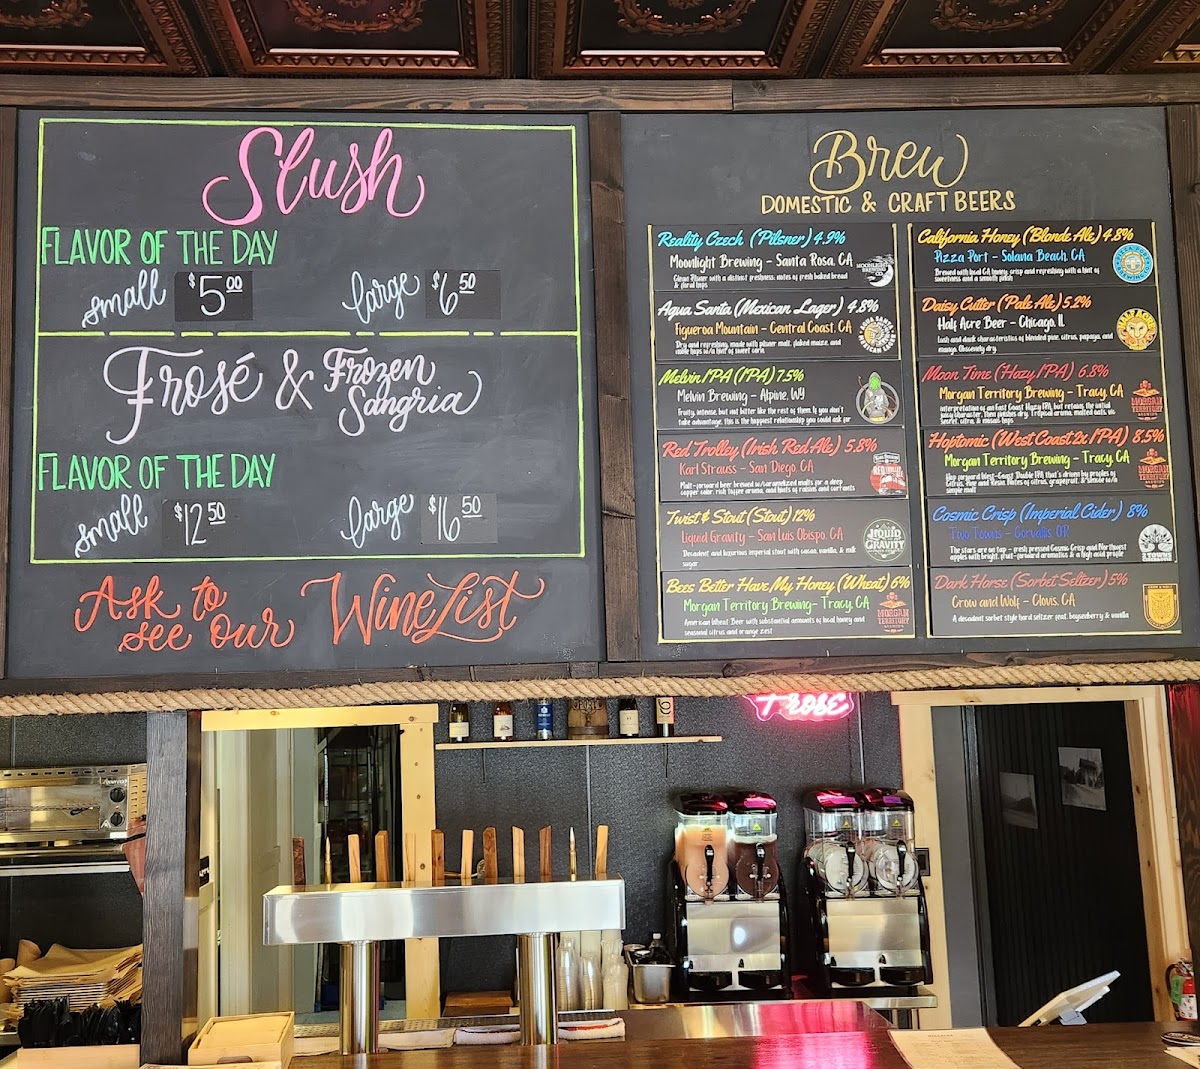 Slush
FLAVOR OF THE DAY
small $5.00 large $6.50
Frosé & Frozen Sangria
FLAVOR OF THE DAY
small $12.50 large $16.50
Ask to see our Wine List
Brew
DOMESTIC & CRAFT BEERS
Reality Czech (Pilsner) 4.9%
Moonlight Brewing - Santa Rosa, CA
Agua Santa (Mexican Lager) 4.8%
Figueroa Mountain - Central Coast, CA
Dry and refreshing, made with pilsner malt, flaked maize, and
noble hops w/a hint of sweet corn
Melvin IPA (IPA) 7.5%
Melvin Brewing - Alpine, WY
Fruity, intense, but not bitter like the rest of them. If you don't
take advantage, this is the happiest relationship you could ask for
Red Trolley (Irish Red Ale) 5.8%
Karl Strauss - San Diego, CA
Malt-forward beer brewed w/caramelized malts for a deep
copper color, rich toffee aroma, and hints of raisins and currants
Twist & Stout (Stout) 12%
Liquid Gravity - San Luis Obispo, CA
Decadent and luxurious imperial stout with cacao, vanilla, & milk
sugar
LIQUID
GRAVITY
Bees Better Have My Honey (Wheat) 6%
Morgan Territory Brewing - Tracy, CA
American Wheat Beer with substantial amounts of local honey and
seasonal citrus and orange zest
MORGAN
TERRITORY
California Honey (Blonde Ale) 4.8%
Pizza Port - Solana Beach, CA
Brewed with local CA honey, crisp and refreshing with a hint of
sweetness and a smooth finish
Daisy Cutter (Pale Ale) 5.2%
Half Acre Beer - Chicago, IL
Lush and dank characteristics of blended pine, citrus, papaya, and
mango. Obscenely dry.
Moon Time (Hazy IPA) 6.8%
Morgan Territory Brewing - Tracy, CA
MORGAN
TERRITORY
Hoptomic (West Coast 2x IPA) 8.5%
Morgan Territory Brewing - Tracy, CA
MORGAN
TERRITORY
Cosmic Crisp (Imperial Cider) 8%
Two Towns - Corvallis, OR
The stars are on tap - fresh pressed Cosmic Crisp and Northwest
apples with bright, fruit-forward aromatics & a high acid profile
2 TOWNS
Dark Horse (Sorbet Seltzer) 5%
Crow and Wolf - Clovis, CA
A decadent sorbet style hard seltzer feat. boysenberry & vanilla
Frosé